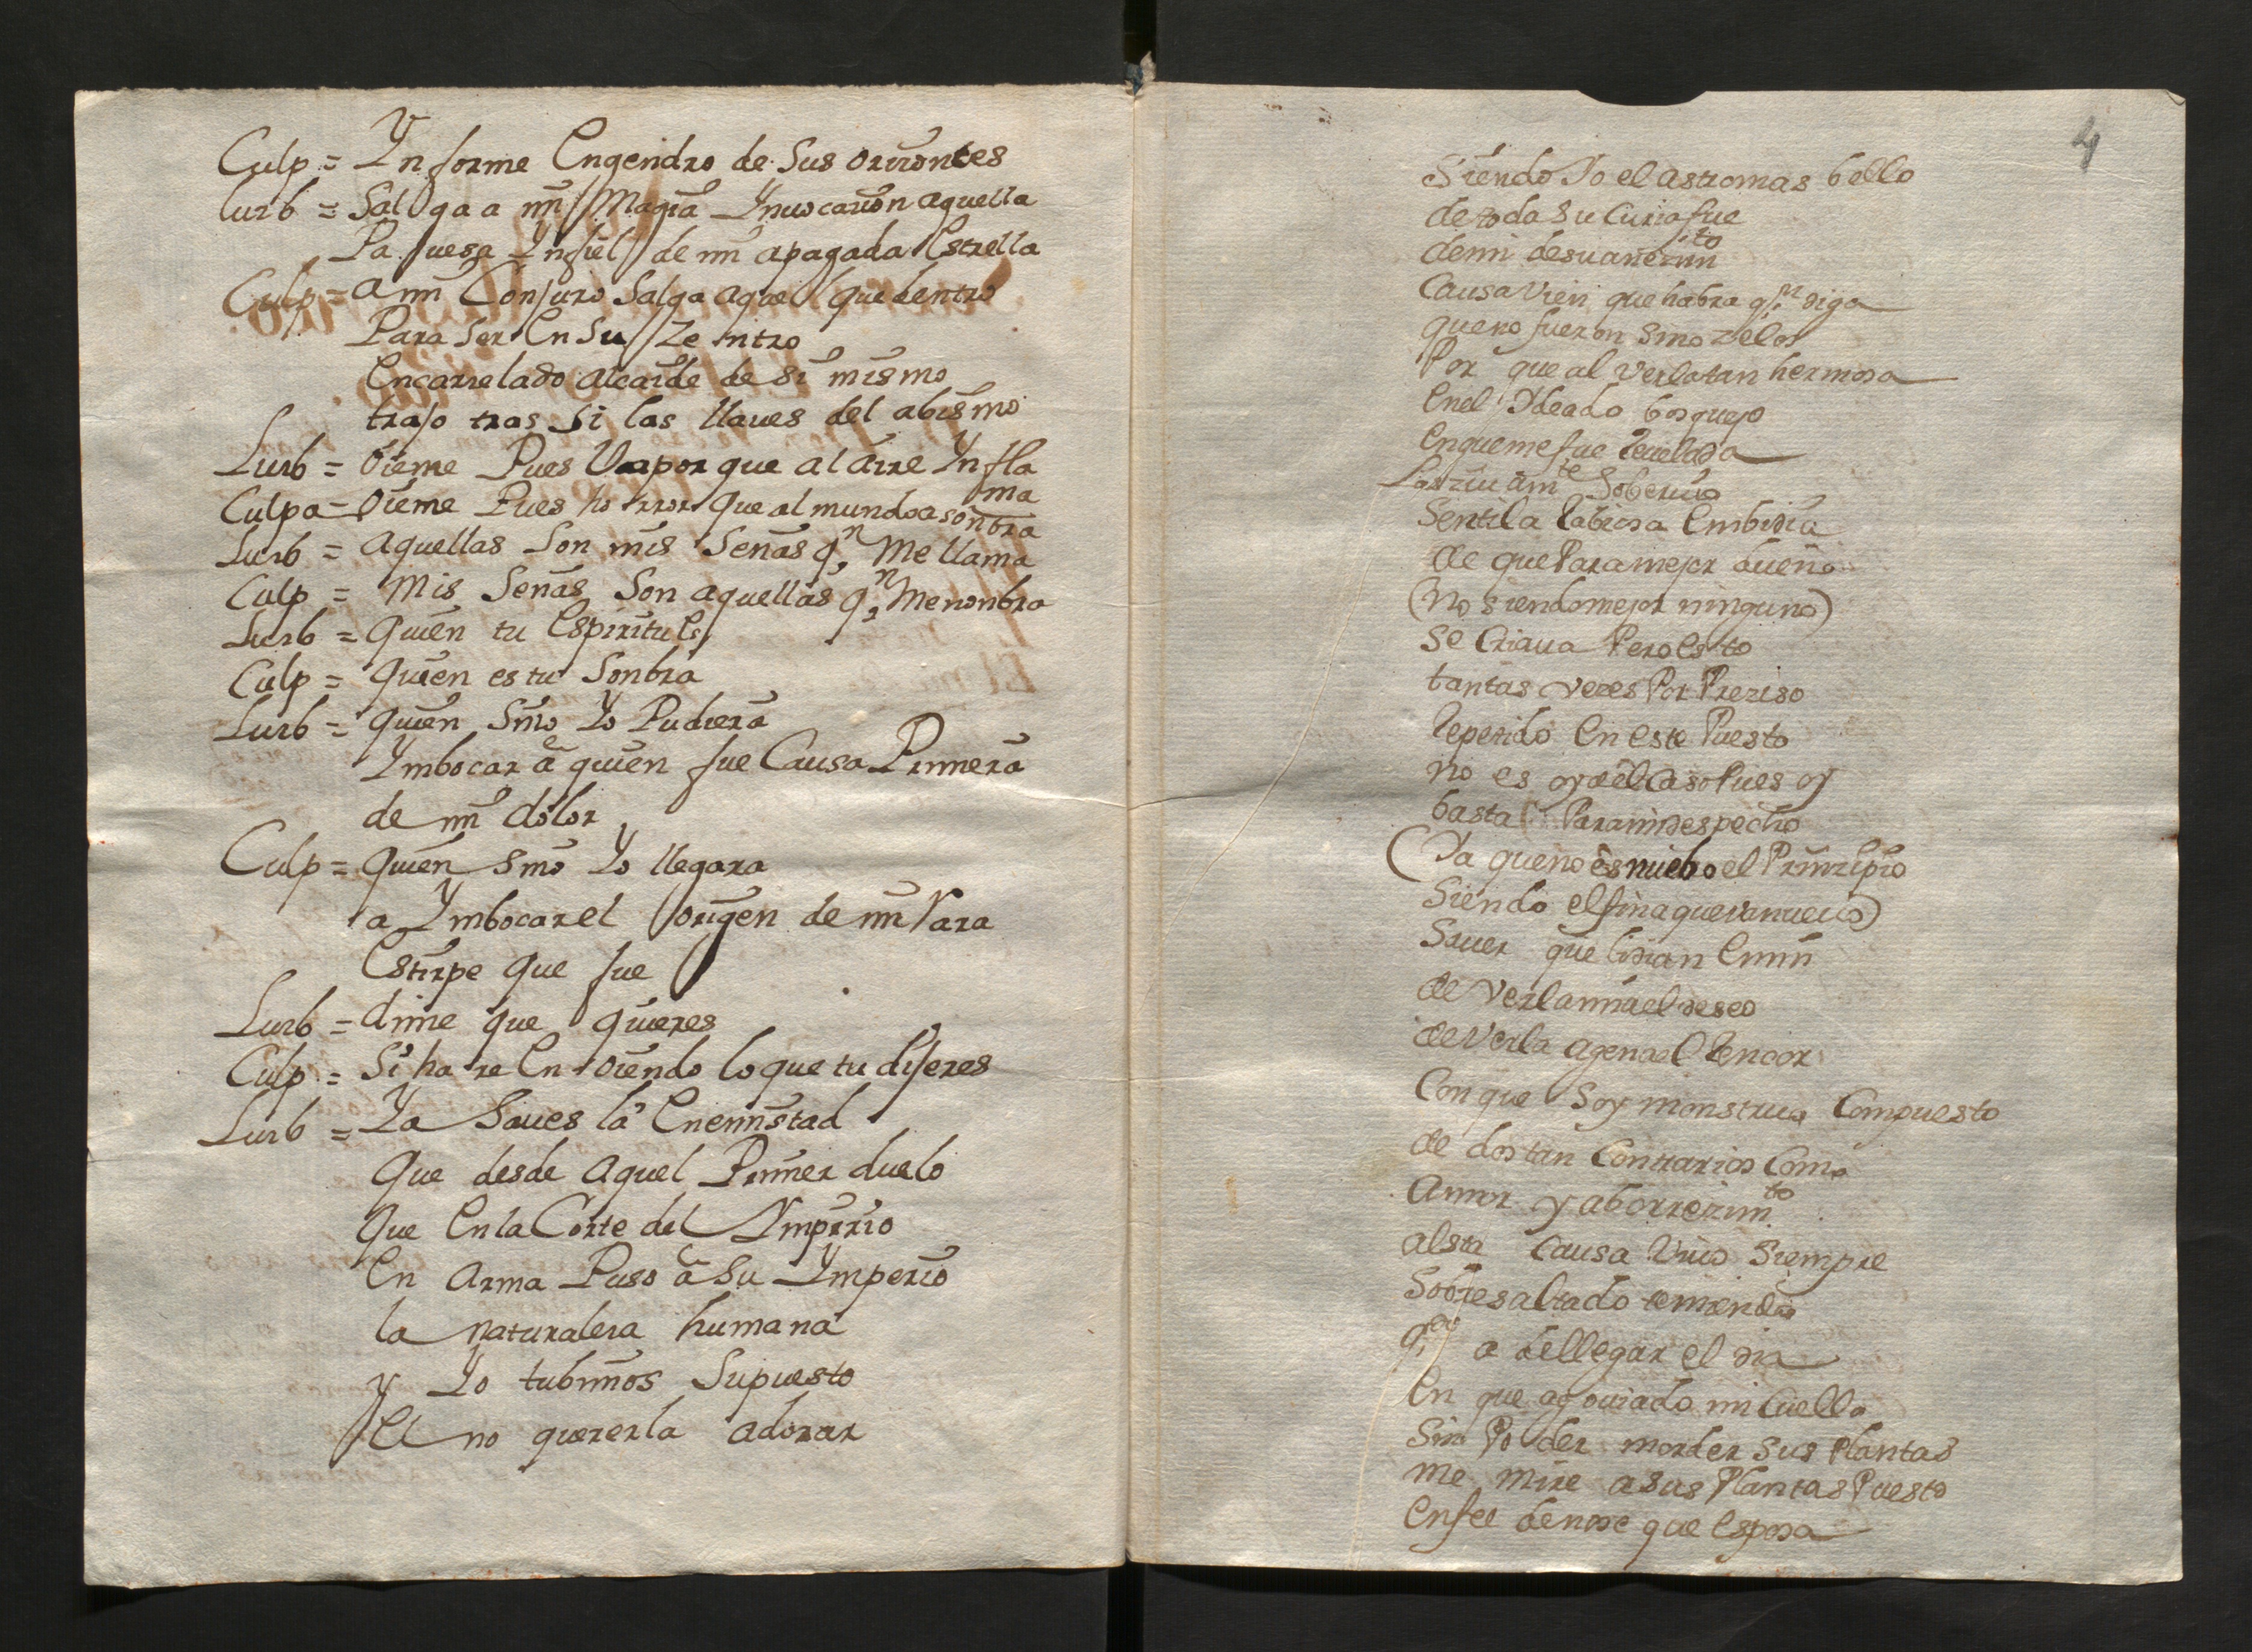 Culp = Ynforme Engendro de Sus orizontes
Lurb = Salga a mi Magia Ynuocazion aquella
Pauesa Ynfiel de mi apagada Estrella
Culp = a mi Conjuro Salga aquel que dentro
Para Ser En Su Zentro
Encarzelado alcaide de si mismo
trajo tras Si las llaues del abismo
Lurb = Oieme Pues Vapor que al aire Ynfla
ma
Culpa = Oieme Pues horror que al mundo asonbra
Lurb = aquellas Son mis Señas qn Me llama
Culp = Mis Señas Son aquellas qn Me nonbra
Lurb = quien tu Espiritu Es
Culp = quien es tu Sonbra
Lurb = quien Sino Yo Pudiera
Ymbocar a quien fue Causa Primera
de mi dolor
Culp = quien Sino Yo llegara
a Ymbocar el origen de mi Rara
Estirpe que fue
Lurb = dime que quieres
Culp = Si hare En oiendo lo que tu dijeres
Lurb = Ya Saues la Enemistad
que desde aquel Primer duelo
que En la Corte del Ympirio
En arma Puso a Su Ymperio
la naturaleza humana
y Yo tubimos Supuesto
El no quererla adorar
4
Siendo Yo el astro mas bello
de toda Su Curia fue
de mi desuanezimto
Causa Vien que habra qn diga
que no fueron Sino zelos
Por que al Verla tan hermosa
En el Ydeado bosquejo
En que me fue Reuelada
Laziuamte Soberuio
Senti la Rabiosa Embidia
de que Para mejor dueño
(no Siendo mejor ninguno)
Se Criaua Pero Esto
tantas Vezes Por Preziso
Repetido En Este Puesto
no es oy del Caso Pues oy
basta Para mi despecho
(Ya que no es nuebo el Prinzipio
Siendo el fin a que Va nueuo)
Sauer que lidian En mi
de Verla mia el deseo
de Verla agena el Rencor
Con que Soy monstruo Compuesto
de dos tan Contrarios Como
Amor y aborrezimto
a Esta Causa Viuo Siempre
Sobresaltado temiendo
a de llegar el dia
En que agouiado mi Cuello
Sin Poder morder Sus Plantas
Me mire a Sus Plantas Puesto
En fee de no se que Esposa